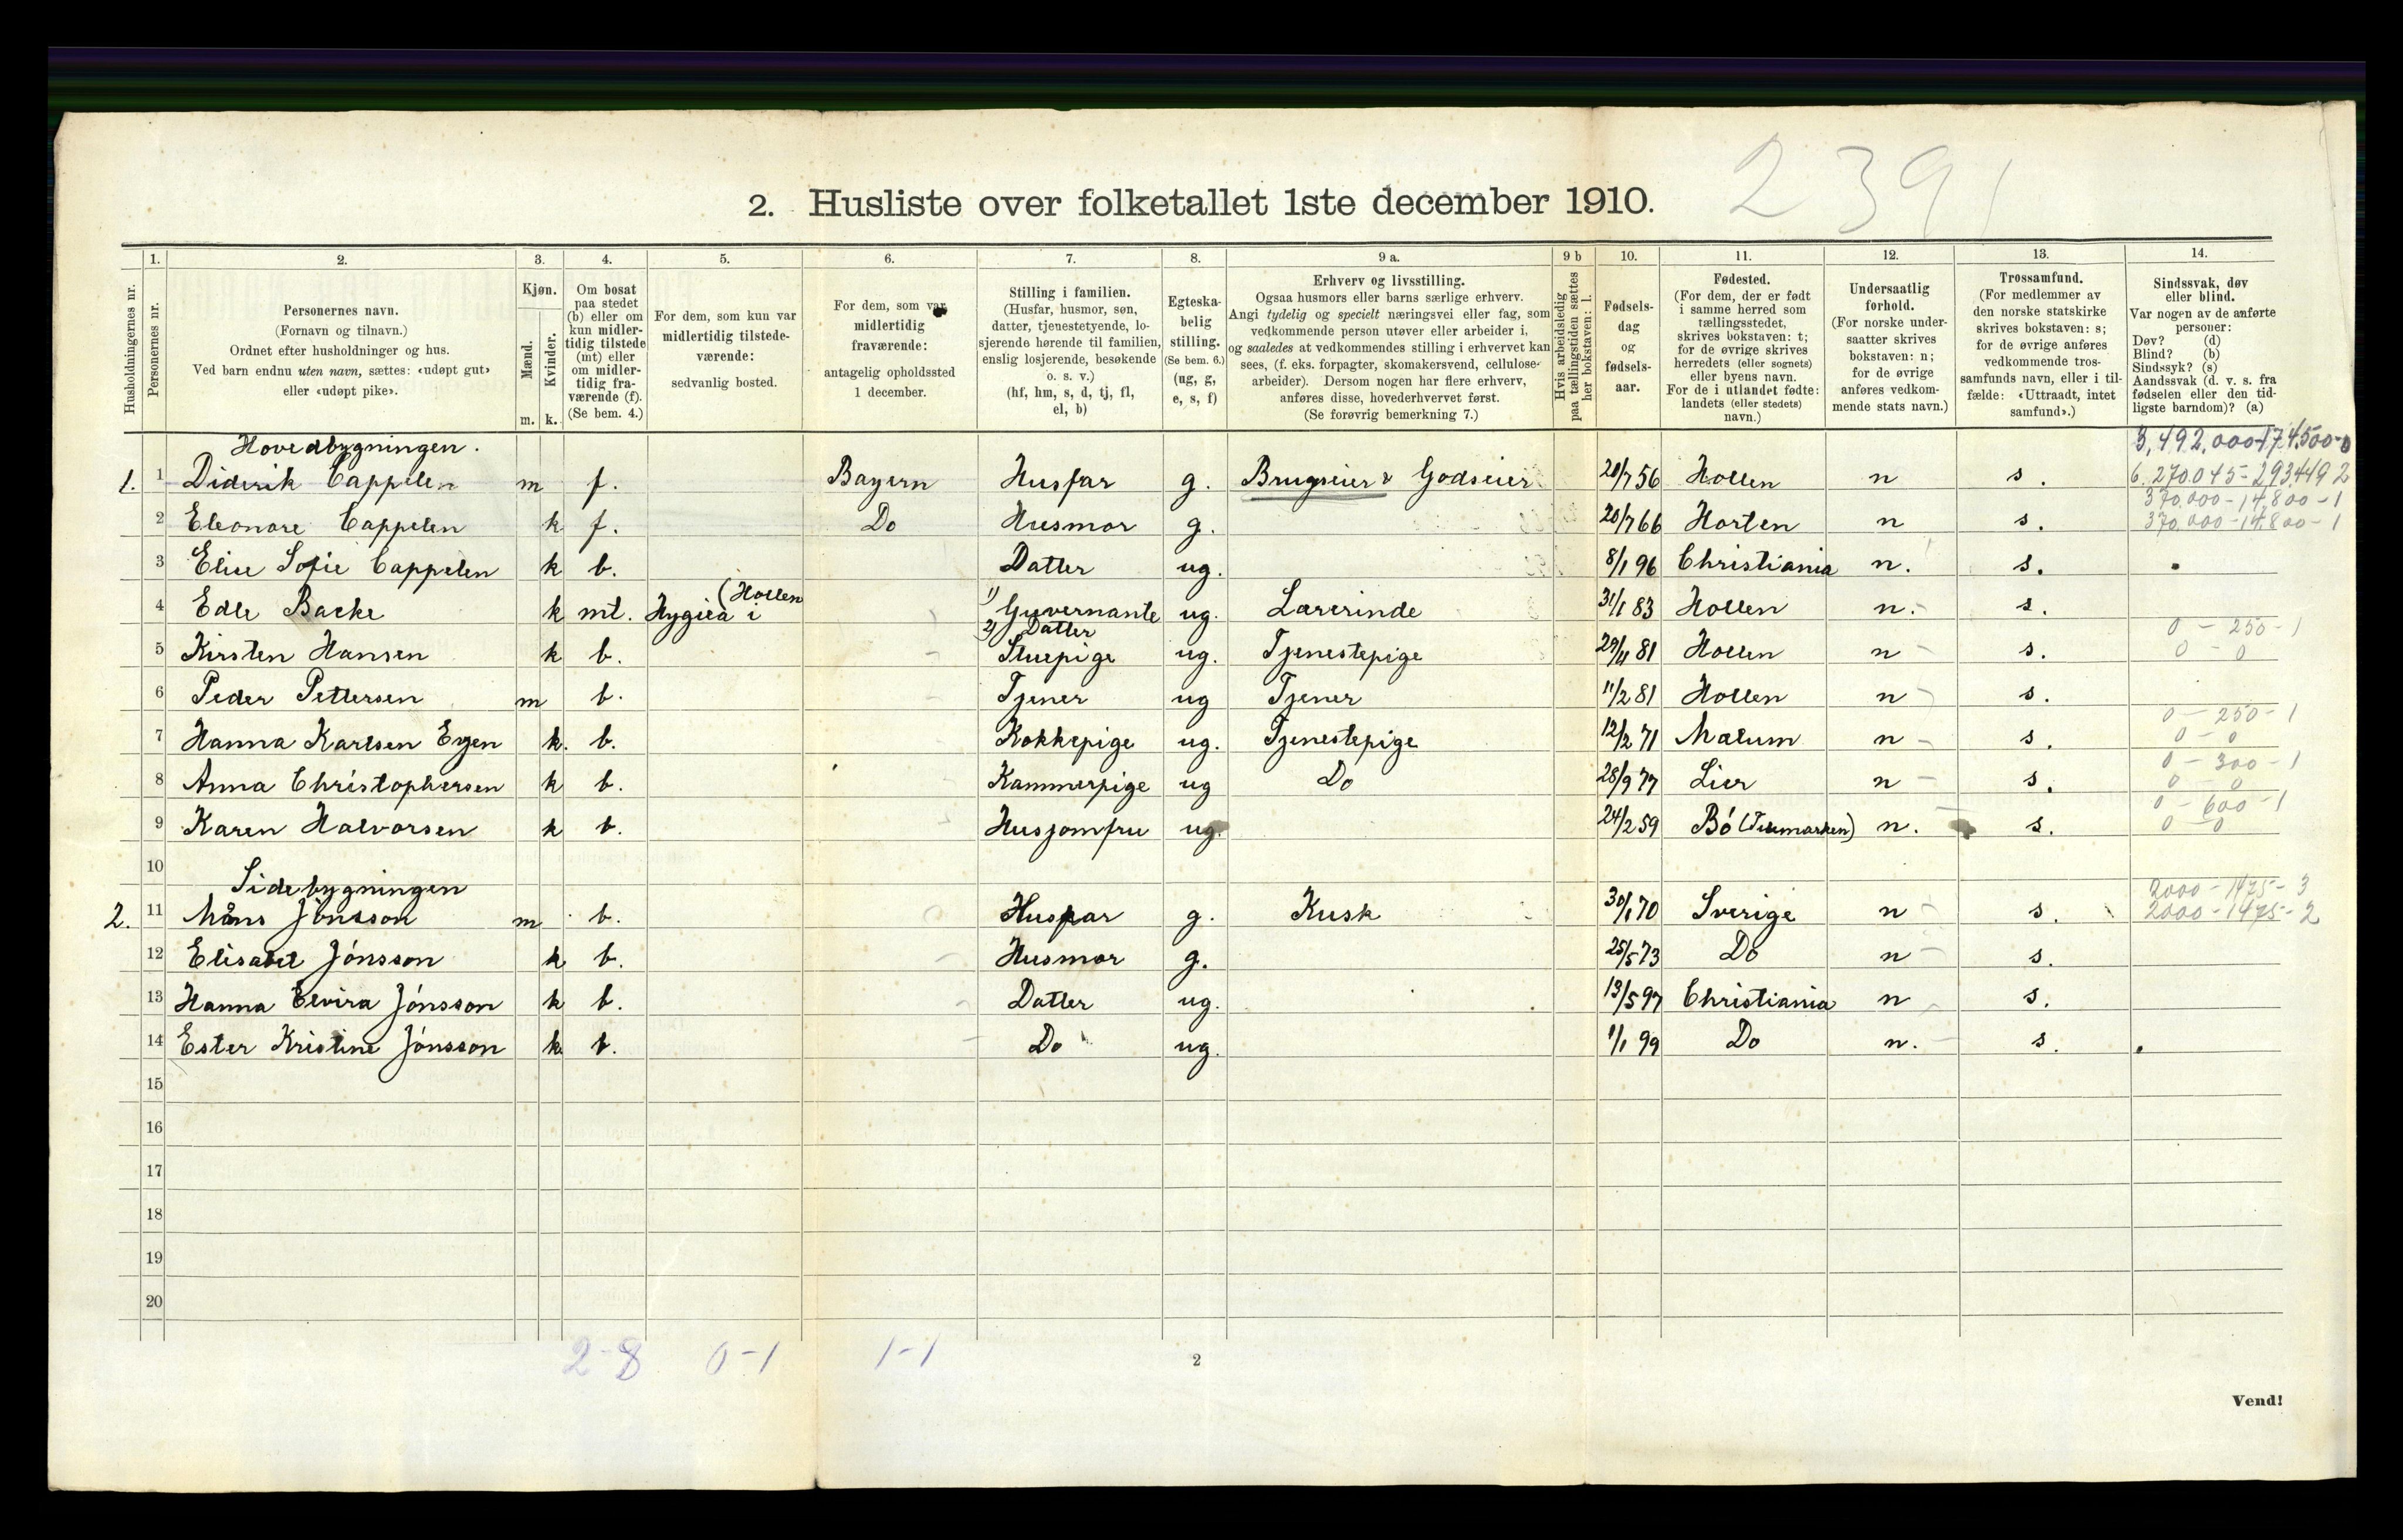 2391
2. Husliste over folketallet 1ste december 1910.
Husholdningernes nr.
1. Personernes nr.
2. Personernes navn. (Fornavn og tilnavn.) Ordnet efter husholdninger og hus. Ved barn endnu uten navn, sættes: «udøpt gut» eller «udøpt pike».
3. Kjøn. Mænd. m. Kvinder. k.
4. Om bosat paa stedet (b) eller om kun midlertidig tilstede (mt) eller om midlertidig fraværende (f). (Se bem. 4.)
5. For dem, som kun var midlertidig tilstedeværende: sedvanlig bosted.
6. For dem, som var midlertidig fraværende: antagelig opholdssted 1 december.
7. Stilling i familien. (Husfar, husmor, søn, datter, tjenestetyende, losjerende hørende til familien, enslig losjerende, besøkende o. s. v.) (hf, hm, s, d, tj, fl, el, b)
8. Egteskabelig stilling. (Se bem. 6.) (ug, g, e, s, f)
9 a. Erhverv og livsstilling. Ogsaa husmors eller barns særlige erhverv. Angi tydelig og specielt næringsvei eller fag, som vedkommende person utøver eller arbeider i, og saaledes at vedkommendes stilling i erhvervet kan sees, (f. eks. forpagter, skomakersvend, cellulosearbeider). Dersom nogen har flere erhverv, anføres disse, hovederhvervet først. (Se forøvrig bemerkning 7.)
9 b Hvis arbeidsledig paa tællingstiden sættes her bokstaven: l.
10. Fødselsdag og fødselsaar.
11. Fødested. (For dem, der er født i samme herred som tællingsstedet, skrives bokstaven: t; for de øvrige skrives herredets (eller sognets) eller byens navn. For de i utlandet fødte: landets (eller stedets) navn.)
12. Undersaatlig forhold. (For norske undersaatter skrives bokstaven: n; for de øvrige anføres vedkommende stats navn.)
13. Trossamfund. (For medlemmer av den norske statskirke skrives bokstaven: s; for de øvrige anføres vedkommende trossamfunds navn, eller i tilfælde: «Uttraadt, intet samfund».)
14. Sindssvak, døv eller blind. Var nogen av de anførte personer: Døv? (d) Blind? (b) Sindssyk? (s) Aandssvak (d. v. s. fra fødselen eller den tidligste barndom)? (a)
Hovedbygningen.
1. 1 Diderik Cappelen m f. Bayern Husfar g. Brugseier & Godseier 20/7 56 Hollen n s. 6.270.045-293.449 2
370.000-14.800-1
2 Eleonore Cappelen k f. Do Husmor g. 20/7 66 Horten n s. 370.000-14.800-1
3 Elise Sofie Cappelen k b. Datter ug. 8/1 96 Christiania n. s.
4 Edle Backe k mt. Hygiea i (Hollen 1) Guvernante ug. Lærerinde 31/1 83 Hollen n. s.
2) Datter 0-250-1
5 Kirsten Hansen k b. Stuepige ug. Tjenestepige 29/11 81 Hollen n s. 0-0
6 Peder Pettersen m b. Tjener ug Tjener 11/2 81 Hollen n s.
0-250-1
7 Hanna Karlsen Eyen k. b. Kokkepige ug. Tjenestepige 12/2 71 Mælum n s. 0-0
0-300-1
8 Anna Christophersen k b. Kammerpige ug Do 28/9 77 Lier n s. 0-0
0-600-1
9 Karen Halvorsen k b. Husjomfru ug. 24/2 59 Bö (Telemarken) n. s. 0-0
10
Sidebygningen 2000-1475-3
2. 11 Måns Jönsson m b. Husfar g. Kusk 30/1 70 Sverige n s. 2000-1475-2
12 Elisabet Jönsson k b. Husmor g. 25/5 73 Do n s.
13 Hanna Elvira Jönsson k b. Datter ug. 13/5 97 Christiania n s.
14 Ester Kristine Jönsson k b. Do ug. 1/1 99 Do n. s.
15
16
17
18
19
20
2-8 0-1 1-1
2
Vend!